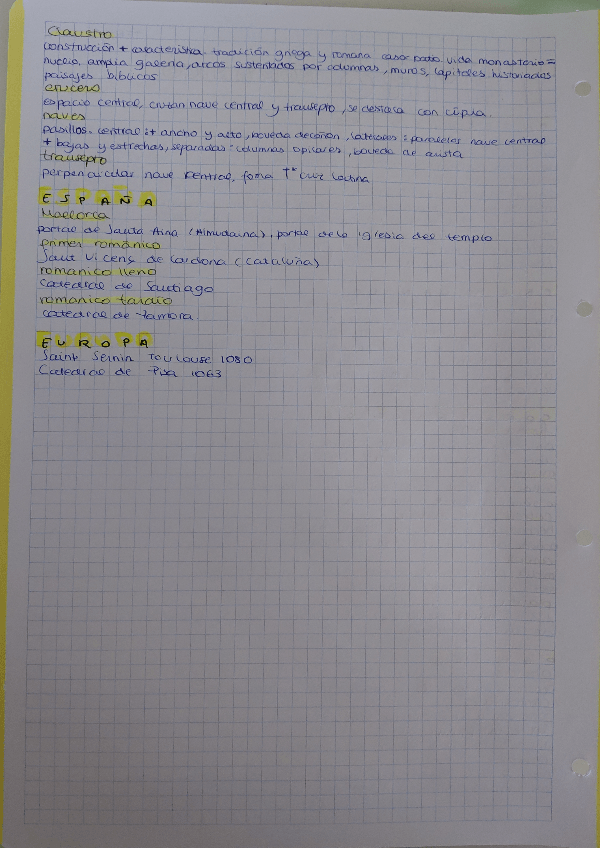 Claustro
construcción + característica. tradición griega y romana casas patio. vida monasterio =
nucleo, amplia galeria, arcos sustentados por columnas, muros, capiteles historiados
paisajes bíblicos
crucero
espacio central, cruzan nave central y transepto, se destaca con cúpula.
naves
pasillos. central: + ancho y alto, boveda de cañon, laterales: paralelas nave central
+ bajas y estrechas, separadas: columnas o pilares, boveda de arista
transepto
perpendicular nave central, forma T o cruz latina
ESPAÑA
Mallorca
portal de Santa Aina (Almudaina), portal de la iglesia del templo
primer románico
Sant Vicenç de Cardona (Cataluña)
romanico lleno
Catedral de Santiago
romanico tardio
catedral de Zamora.
EUROPA
Saint Sernin Toulouse 1080
Catedral de Pisa 1063